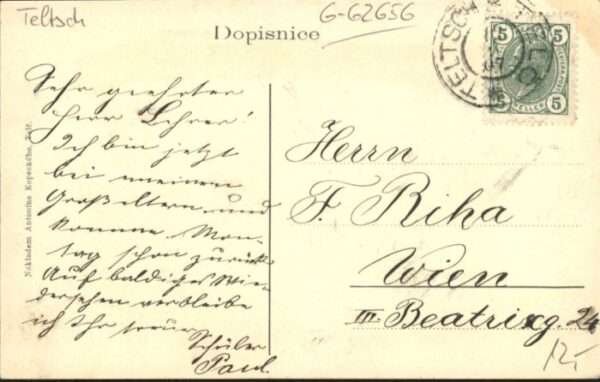 Teltsch
G-62656
Dopisnice
TELTSCH TELČ
5 5
5 HELLER 5
Sehr geehrter
Herr Lehrer!
Ich bin jetzt
bei meinen
Großeltern und
komme Mon-
tag schon zurück
Auf baldiges Wie-
dersehen verbleibe
ich Ihr treuer
Schüler
Paul
Nákladem Antonína Kopeckého, Telč.
Herrn
F. Riha
Wien
III. Beatrixg. 24
12,-